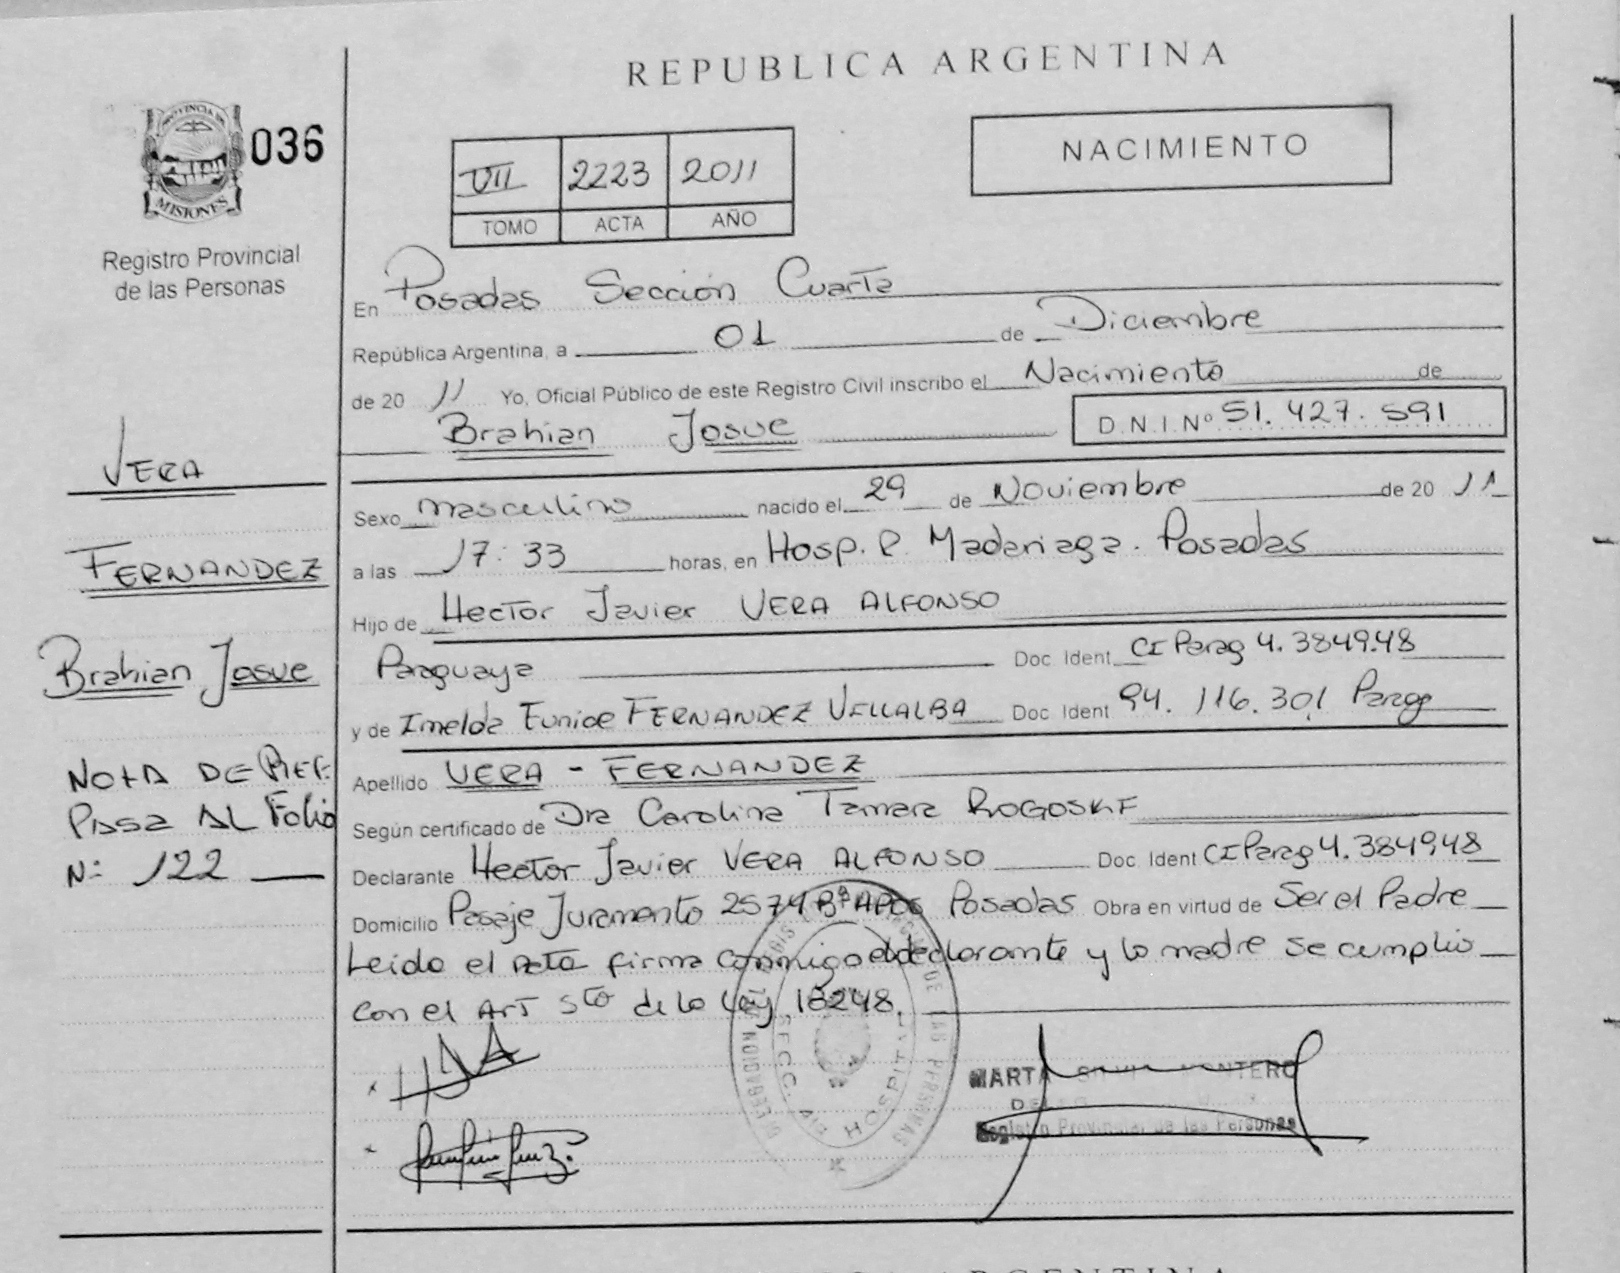 REPUBLICA ARGENTINA
PROVINCIA DE
MISIONES
036
Registro Provincial
de las Personas
VII 2223 2011
TOMO ACTA AÑO
NACIMIENTO
En Posadas Sección Cuarta
República Argentina, a 01 de Diciembre
de 20 11 Yo, Oficial Público de este Registro Civil inscribo el Nacimiento de
Brahian Josue D.N.I.Nº 51.427.591
VERA
FERNANDEZ
Brahian Josue
NOTA DE REF.
Passa AL Folio
N: 122
Sexo masculino nacido el 29 de Noviembre de 20 11
a las 17:33 horas, en Hosp. R. Madariaga. Posadas
Hijo de Hector Javier VERA ALFONSO
Paraguaya Doc Ident CI Parag 4.384948
y de Imelda Eunice FERNANDEZ VILLALBA Doc Ident 94.116.301 Parag
Apellido VERA - FERNANDEZ
Según certificado de Dra Carolina Tamara ROGOSKI
Declarante Hector Javier VERA ALFONSO Doc Ident CI Parag 4.384948
Domicilio Pasaje Juramento 2574 Bº APOS Posadas Obra en virtud de Ser el Padre
Leido el acta firma conmigo el declarante y la madre se cumplio
con el ART 5to de la Ley 18248.
DE LAS PERSONAS
DELEGACION
SECC.
HOSPITAL
MARTA
Registro Provincial de las Personas